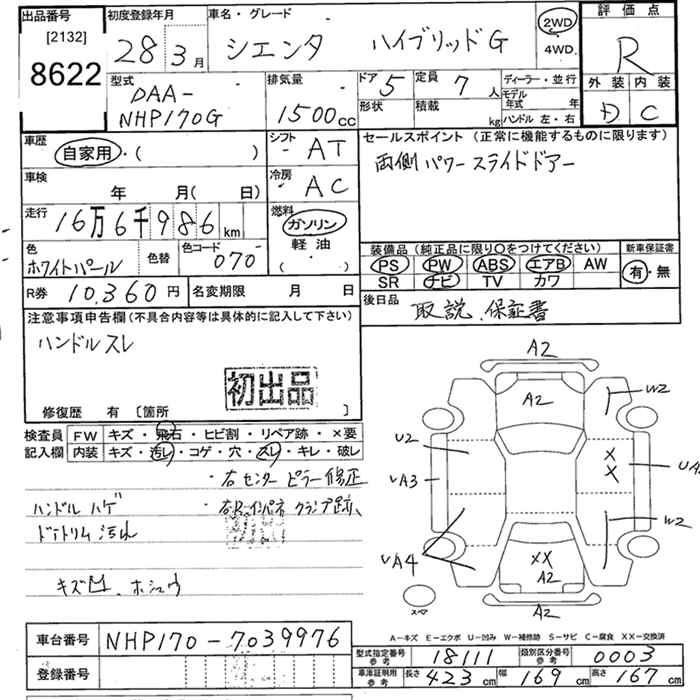 出品番号
[2132]
8622
初度登録年月
28年3月
車名・グレード
シエンタ ハイブリッドG
2WD
4WD
評価点
R
外装 内装
D C
型式
DAA-
NHP170G
排気量
1500cc
ドア 5
形状
定員 7人
積載 kg
ディーラー・並行
モデル年式 年
ハンドル 左・右
車歴
自家用・( )
シフト
AT
車検
年 月( 日)
冷房
AC
走行
16万6千986km
燃料
ガソリン
軽油
( )
色
ホワイトパール
色替
色コード
070
R券 10,360円
名変期限 月 日
セールスポイント (正常に機能するものに限ります)
両側パワースライドドアー
装備品(純正品に限り○をつけてください)
PS PW ABS エアB AW
SR ナビ TV カワ
新車保証書
有・無
後日品
取説、保証書
注意事項申告欄(不具合内容等は具体的に記入して下さい)
ハンドルスレ
初出品
修復歴 有 [箇所 ]
検査員記入欄
FW キズ・飛石・ヒビ割・リペア跡・×要
内装 キズ・汚レ・コゲ・穴・スレ・キレ・破レ
・右センターピラー修正
ハンドルハゲ
・右R.インパネ クランプ跡、
ドアトリム汚れ
キズ凹 ホシュウ
A2
A2
W2
U2
XX
UA3
W2
UA4
XX
A2
A2
スペア
A-キズ E-エクボ U-凹み W-補修跡 S-サビ C-腐食 XX-交換済
車台番号 NHP170-7039976
登録番号
型式指定番号 参考 18111
類別区分番号 参考 0003
車庫証明用 参考 長さ 423cm 幅 169cm 高さ 167cm